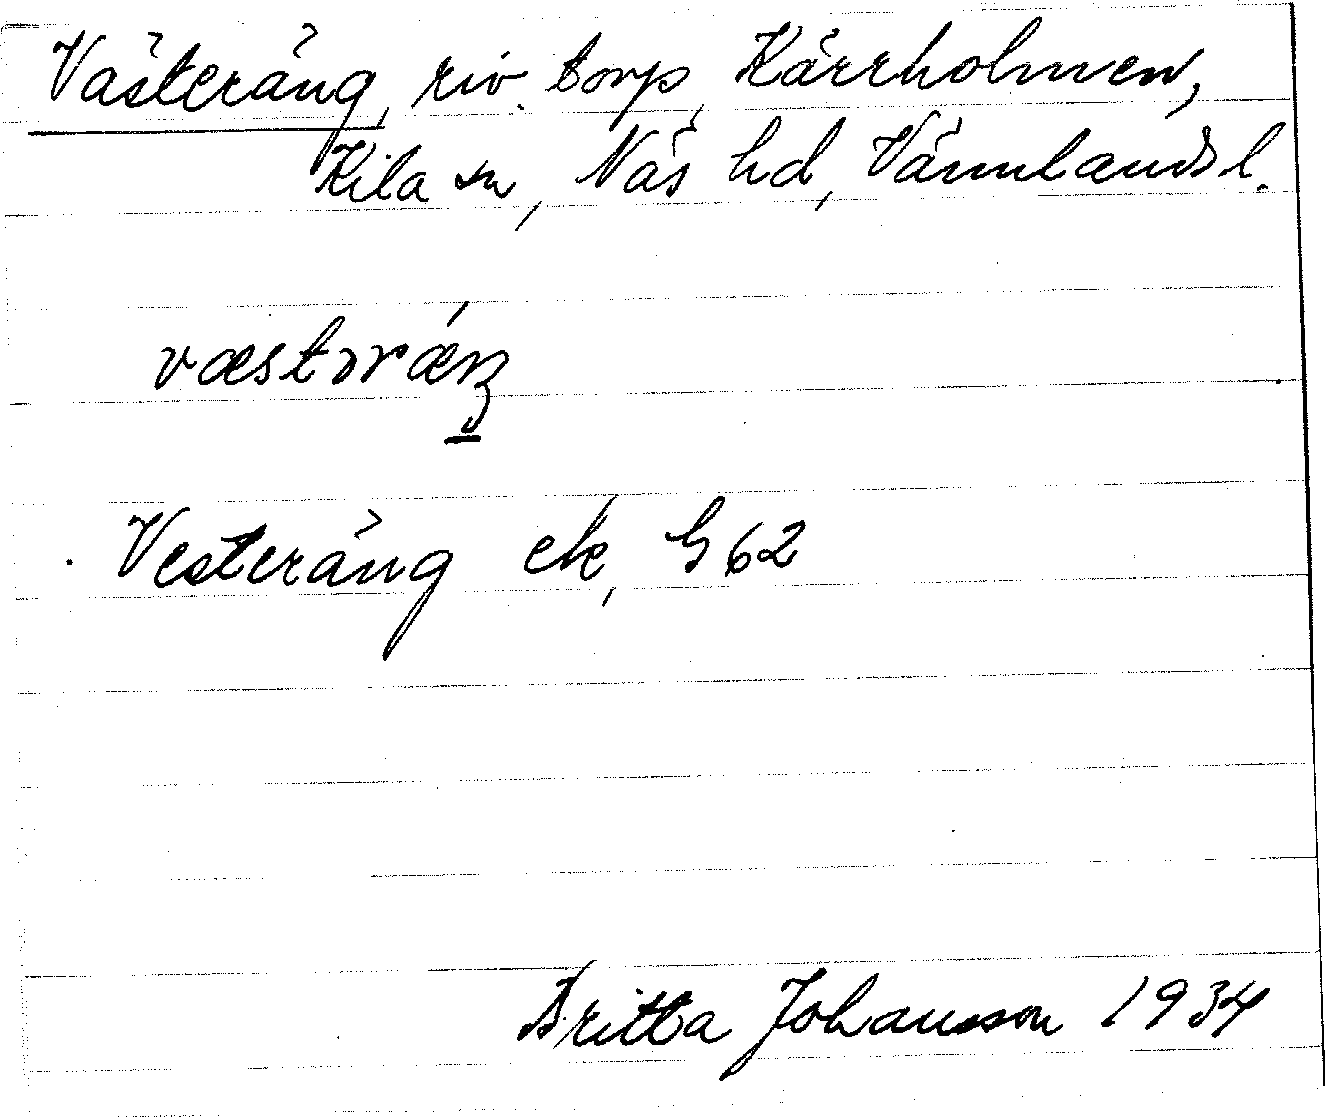 Västeräng, riv. torp, Kärrholmen,
Kila sn, Näs hd, Värmlands l.
Vesteräng ek, G 62
Britta Johansson 1934